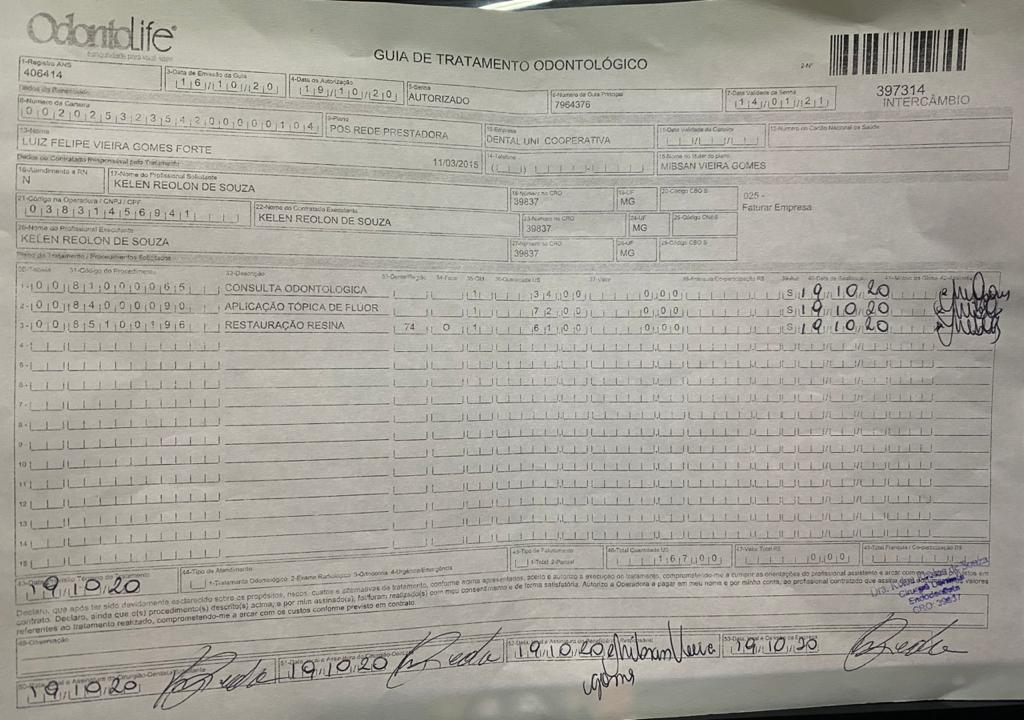 OdontoLife
GUIA DE TRATAMENTO ODONTOLÓGICO
2-Nº
397314
INTERCÂMBIO
1-Registro ANS
406414
3-Data de Emissão da Guia
16/10/20
4-Data de Autorização
19/10/20
5-Senha
AUTORIZADO
6-Número da Guia Principal
7964376
7-Data Validade da Senha
14/01/21
8-Número da Carteira
00202532354200000104
9-Plano
POS REDE PRESTADORA
10-Empresa
DENTAL UNI COOPERATIVA
11-Data Validade da Carteira
12-Número do Cartão Nacional de Saúde
13-Nome
LUIZ FELIPE VIEIRA GOMES FORTE
11/03/2015
14-Telefone
15-Nome do titular do plano
MIBSAN VIEIRA GOMES
Dados do Contratado Responsável pelo Tratamento
16-Atendimento a RN
N
17-Nome do Profissional Solicitante
KELEN REOLON DE SOUZA
18-Número no CRO
39837
19-UF
MG
20-Código CBO S
025 -
Faturar Empresa
21-Código na Operadora / CNPJ / CPF
03831456941
22-Nome do Contratado Executante
KELEN REOLON DE SOUZA
23-Número no CRO
39837
24-UF
MG
25-Código CNES
26-Nome do Profissional Executante
KELEN REOLON DE SOUZA
27-Número no CRO
39837
28-UF
MG
29-Código CBO S
Plano de Tratamento / Procedimentos Solicitados
30-Tabela 31-Código do Procedimento 32-Descrição 33-Dente/Região 34-Face 35-Qtd 36-Quantidade US 37-Valor
1- 00 81000065 CONSULTA ODONTOLOGICA 1 34,00 0,00 S 19.10.20
2- 00 84000090 APLICAÇÃO TÓPICA DE FLÚOR 1 72,00 0,00 S 19.10.20
3- 00 85100196 RESTAURAÇÃO RESINA 74 O 1 61,00 0,00 S 19.10.20
4-
5-
6-
7-
8-
9-
10
11
12
13
14
15
19.10.20
44-Tipo de Atendimento
1-Tratamento Odontológico 2-Exame Radiológico 3-Ortodontia 4-Urgência/Emergência
45-Tipo de Faturamento
1-Total 2-Parcial
46-Total Quantidade US
167,00
47-Valor Total R$
0,00
48-Total Franquia / Co-participação R$
Declaro, que após ter sido devidamente esclarecido sobre os propósitos, riscos, custos e alternativas de tratamento, conforme acima apresentados, aceito e autorizo a execução do tratamento, comprometendo-me a cumprir as orientações do profissional assistente e arcar com
contrato. Declaro, ainda que o(s) procedimento(s) descrito(s) acima, e por mim assinado(s), foi/foram realizado(s) com meu consentimento e de forma satisfatória. Autorizo a Operadora a pagar em meu nome e por minha conta, ao profissional contratado que assina
referentes ao tratamento realizado, comprometendo-me a arcar com os custos conforme previsto em contrato.
Cirurgiã Dentista
Endodontista
CRO: 39837
49-Observação
19.10.20
19.10.20
19.10.20 Mibsan Vieira
Gomes
19.10.20